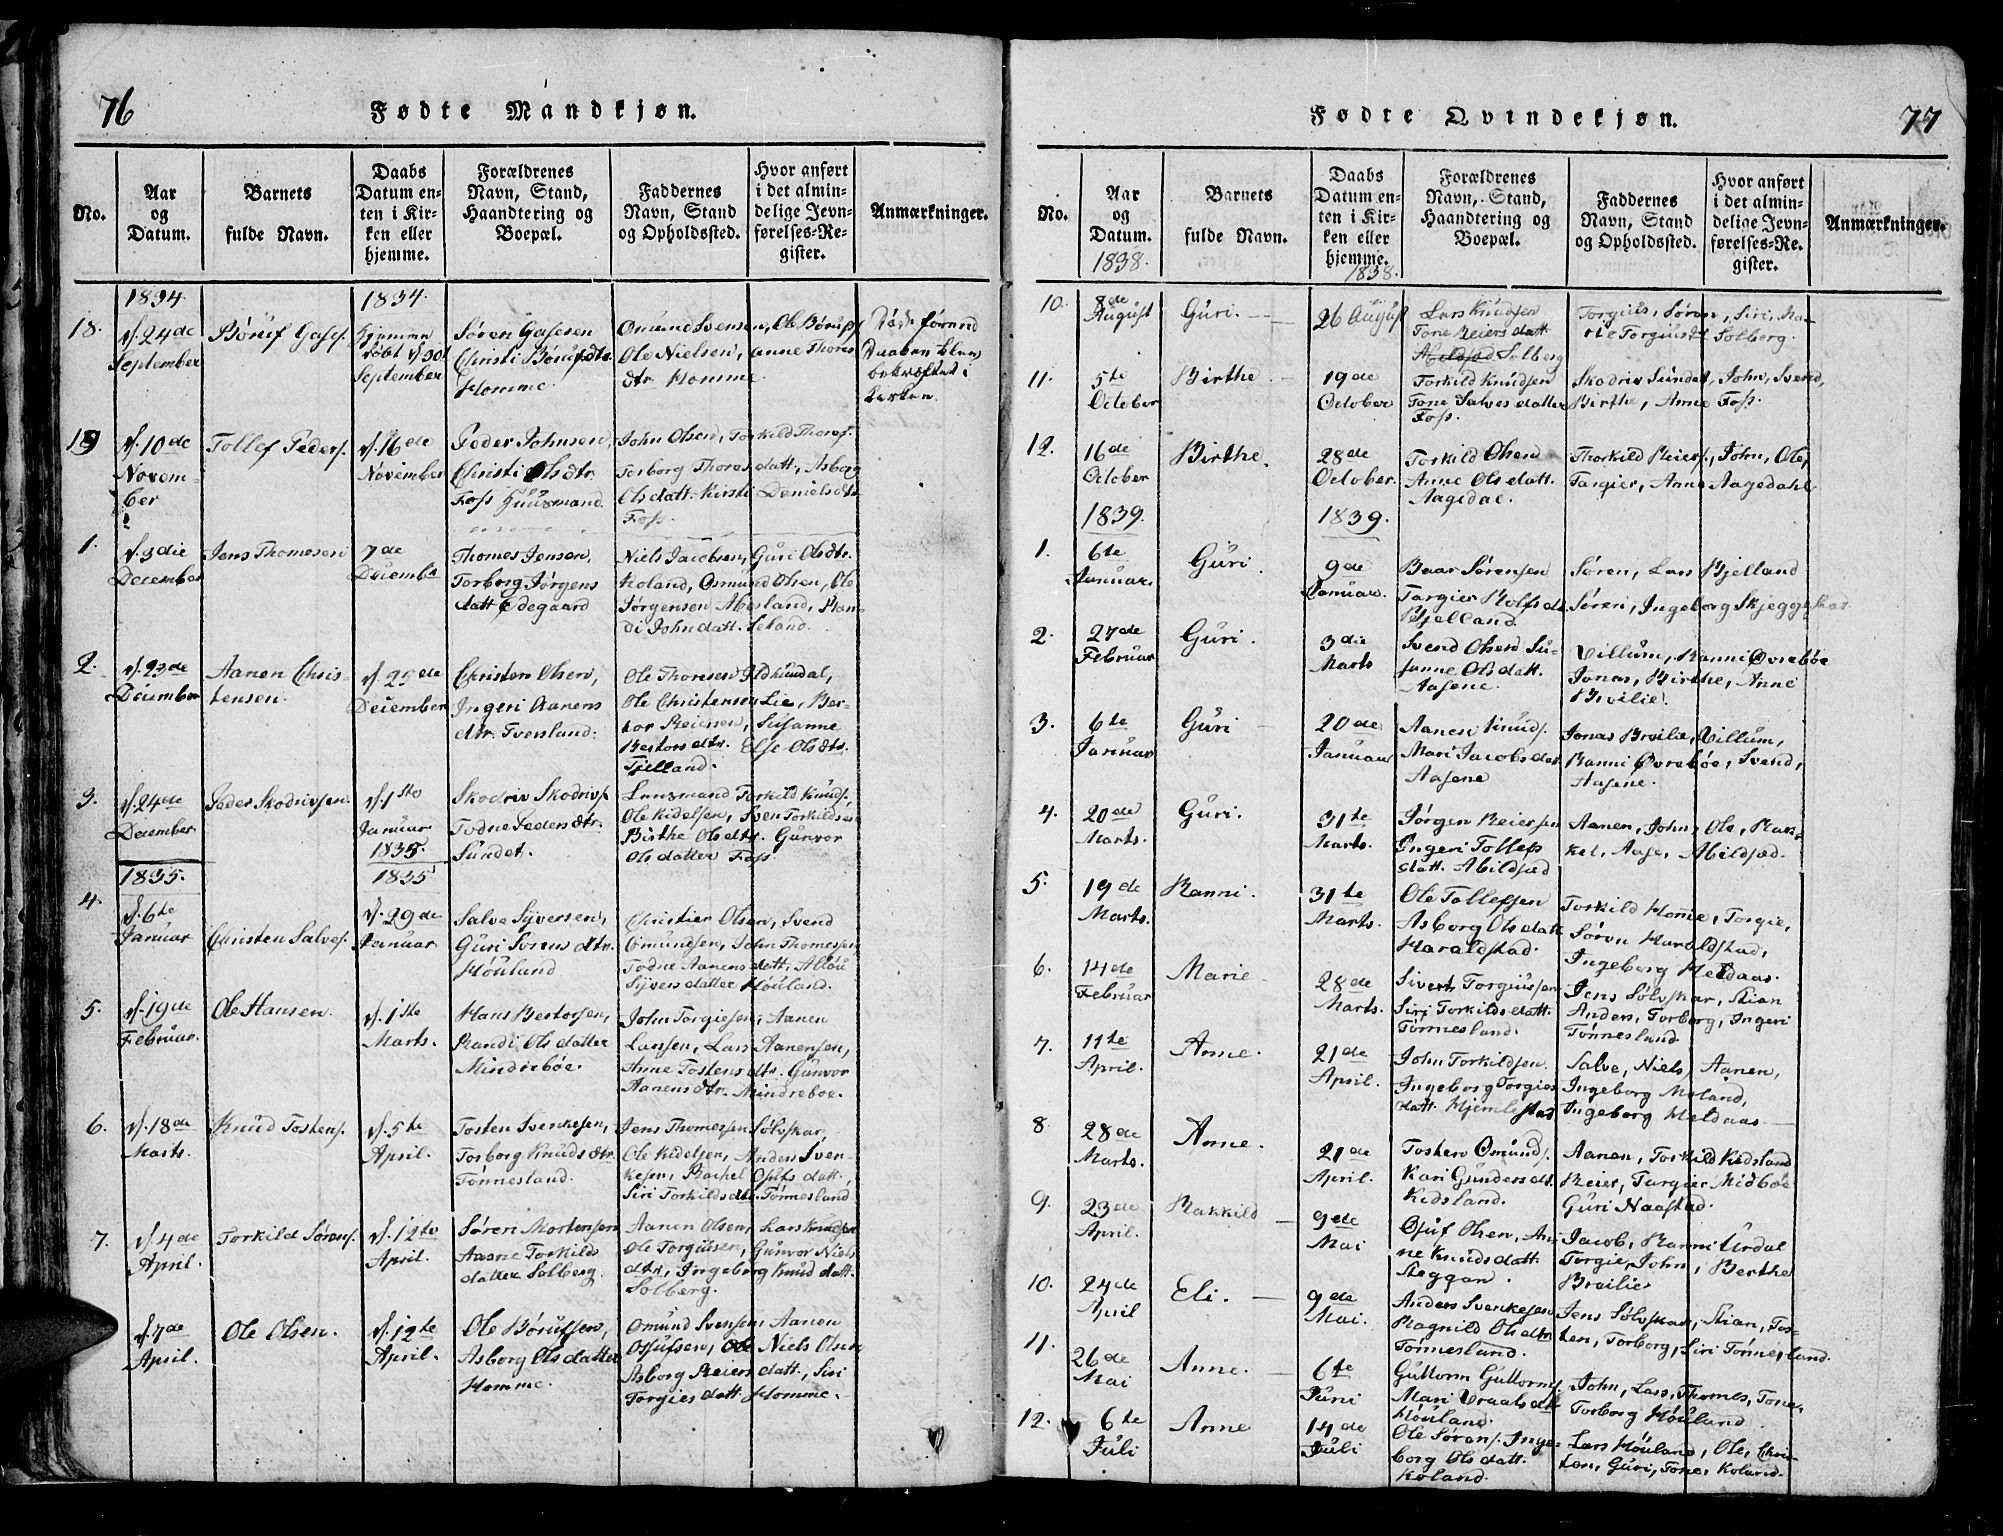 76
Fødte Mandkjøn.
No.
Aar
og
Datum.
Barnets
fulde Navn.
Daabs
Datum en-
ten i Kir-
ken eller
hjemme.
Forældrenes
Navn, Stand,
Haandtering og
Boepæl.
Faddernes
Navn, Stand
og Opholdssted.
Hvor anført
i det almin-
delige Jevn-
førelses-Re-
gister.
Anmærkninger.
1834.
1834.
18.
d. 24de
September
Børuf Gases.
Hjemme
døbt d. 30t
September
Søren Gasesen
Christi Børufsdtr.
Homme.
Omund Svensen, Ole Børufs.
Ole Nielsen, Anne Thores
dtr Homme.
Døde førend
Daaben blev
bekræftet i
Kirken.
19
d. 10de
Novem-
ber
Tollef Peders.
d. 16de
November
Peder Johnsen,
Christi Olsdtr.
Foss Huusmand.
John Olsen, Torkild Thores.
Torborg Thoresdatt., Asborg
Olsdatt. Kirsti Danielsdtr
Foss.
1.
d. 3die
December
Jens Thomesen
7de
Decembr
Thomes Jensen,
Torborg Jørgens
datt Ødegaard
Niels Jacobsen, Guri Olsdtr.
Koland, Osmund Olsen, Ole
Jørgensen Abesland, Ran-
di Johndatt. Seland.
2.
d. 23de
December
Aanen Chris-
tensen.
d. 25de
December
Christen Olsen,
Ingeri Aanens
dtr. Tveesland.
Ole Thoresen
Ole Christensen Lie, Ber-
tor Reiersen, Susanne
Bertorsdtr. Else Olsdtr.
Tjelland.
3.
d. 24de
December
Peder Skodrivsen
d. 1ste
Januar
1835.
Skodriv Skodrivs.
Todne Pedersdtr.
Sundet.
Lensmand Torkild Knuds.,
Ole Kidelsen, Sven Torkildsen
Birthe Olsdtr. Gunvor
Olsdatter Foss.
1835.
1835
4.
d. 6te
Januar
Christen Salves.
d. 29de
Januar
Salve Syversen,
Guri Sørensdtr.
Houland
Christen Olsen, Svend
Omundsen, John Thomessen
Todne Aanensdatt.
Syversdatter Houland.
5.
d. 19de
Februar.
Ole Hansen.
d. 1ste
Marts.
Hans Bertorsen,
Randi Olsdatter
Mindrebøe.
John Torgiesen, Aanen
Larssen, Lars Aanensen,
Anne Tostensdtr. Gunvor
Aanensdtr. Mindrebøe.
6.
d. 18de
Marts.
Knud Tostens.
d. 5te
April.
Tosten Svenkesen,
Torborg Knudsdtr.
Tønnesland.
Jens Thomessen Sølvskar,
Ole Kidelsen, Anders Sven-
kesen, Rachel Osufsdatt.,
Siri Torkildsdtr. Tønnesland
7.
d. 4de
April.
Torkild Sørens.
d. 12te
April.
Søren Mortensen
Aasne Torkilds
datter Solberg.
Aanen Olsen, Lars Knudsen
Ole Torgiussen, Gunvor Niels
dtr, Ingeborg Knuddatt.
Solberg.
d. 7de
April.
Ole Olsen.
d. 12te
April.
Ole Børufsen,
Asborg Olsdatter
Homme.
Omund Svensen, Aanen
Osufsen, Ole Niels Olsen
Asborg Reiersdatt., Siri
Torgiesdatt. Homme.
Fødte Qvindekjøn.
77
No.
Aar
og
Datum.
1838.
Barnets
fulde Navn.
Daabs
Datum en-
ten i Kir-
ken eller
hjemme.
1838.
Forældrenes
Navn, Stand,
Haandtering og
Boepæl.
Faddernes
Navn, Stand
og Opholdssted.
Hvor anført
i det almin-
delige Jevn-
førelses-Re-
gister.
Anmærkninger.
10.
8de
August
Guri.
26 August
Lars Knudsen
Tone Reiersdatt.
Abildsød Solberg
Torgius, Søren, Siri, Ma-
rie Torgiusdt Solberg.
11.
5te
October
Birthe.
19de
October
Torkild Knudsen
Tone Salvesdatter
Foss.
Skodriv Sundet, John, Svend,
Birthe, Anne Foss.
12.
16de
October
Birthe.
28de
October.
Torkild Olsen
Anne Olsdatt.
Aagedal.
Thorkild Reiers., John, Ole,
Targier, Anne Aagedahl
1839.
1839.
1.
6te
Januar.
Guri.
9de
Januar.
Baar Sørensen
Targier Rolfsdt.
Bjelland.
Søren, Lars Bjelland
Søren, Ingeborg Skjeggestad
2.
27de
Februar
Guri.
3die
Marts
Svend Olsen Su-
sanne Olsdatt.
Aasene.
Villum, Ranni Øvrebøe
Jonas, Birthe, Anne
Brvilie.
3.
6te
Januar
Guri
20de
Januar
Aanen Knuds.
Mari Jacobsdatt
Aasene
Jonas Brvilie, Villum,
Ranni Øvrebøe, Svend,
Aasene.
4.
20de
Marts.
Guri.
31te
Marts.
Jørgen Reiersen
Ingeri Tollefs
datt. Abildsød
Aanen, John, Ole, Ras-
kel, Aase, Abildsød.
5.
19de
Marts.
Ranni.
31te
Marts.
Ole Tollefsen
Asborg Olsdatt
Haraldstad.
Torkild Home, Torgie,
Søren Haraldstad,
Ingeborg Heldaas.
6.
14de
Februar
Marie
28de
Marts.
Sivert Torgiussen
Siri Torkildsdatt.
Tønnesland.
Jens Sølvskar, Stian
Anders, Torborg, Ingeri
Tønnesland
7.
11te
April.
Anne.
21de
April.
John Torkildsen.
Ingeborg Torgies
datt. Hjemlestad
Salve, Niels, Aanen,
Ingeborg Moland,
Ingeborg Heldaas
8
28de
Marts.
Anne.
21de
April.
Tosten Omunds.
Kari Gundersdt.
Kidsland.
Aanen, Torkild Kidsland
Reier, Targier Midbøe
Guri Naastad.
9.
23de
April.
Rakkild
9de
Mai
Osuf Olsen, An-
ne Knudsdatt.
Steggan.
Jacob, Ranni Urdal
Torgie, John, Berthe
Brvilie
10.
24de
April
Eli.
9de
Mai.
Anders Svenkesen
Ragnild Olsdtr
Tønnesland.
Jens Sølvskar, Stian, Tos-
ten, Torborg, Siri Tønnesland.
11.
26de
Mai
Anne.
6te
Juni
Guttorm Guttorms.
Mari Vraalsdt
Houland.
John, Lars, Thomes, Tone,
Torborg Houland
12.
6te
Juli
Anne
14de
Juli
Ole Sørens. Inge-
borg Olsdatt.
Koland.
Lars Houland, Ole, Chris-
ten, Guri, Tone, Koland.